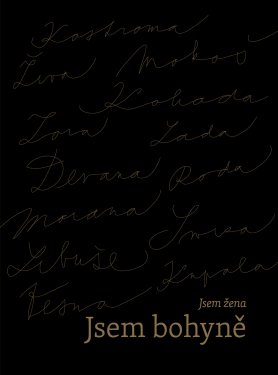 Kostroma
Živa Mokoš
Kolada
Zora Lada
Devana Roda
Morana
Libuše
Kupala
Vesna
Jsem žena
Jsem bohyně